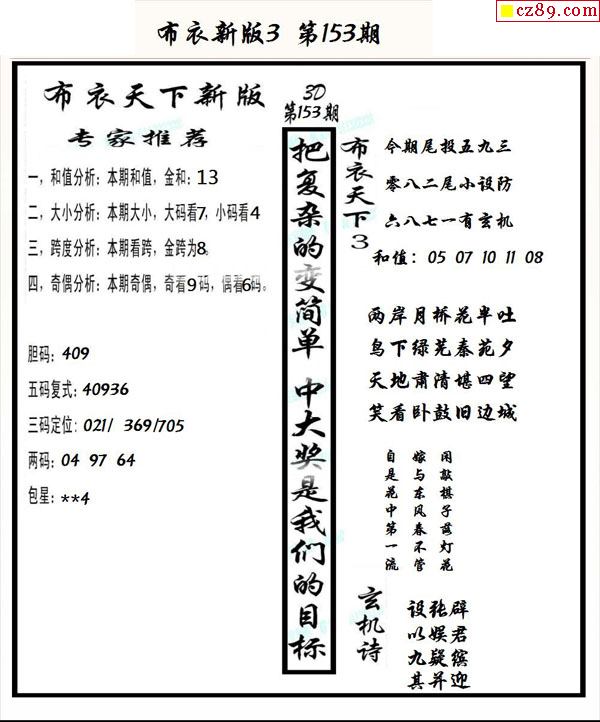 cz89.com
布衣新版3 第153期
布衣天下新版
专家推荐
一，和值分析：本期和值，金和：13
二，大小分析：本期大小，大码看7，小码看4
三，跨度分析：本期看跨，金跨为8。
四，奇偶分析：本期奇偶，奇看9码，偶看6码。
胆码：409
五码复式：40936
三码定位：021/ 369/705
两码：04 97 64
包星：**4
3D
第153期
把复杂的变简单 中大奖是我们的目标
布衣天下3
今期尾投五九三
零八二尾小设防
六八七一有玄机
和值：05 07 10 11 08
两岸月桥花半吐
鸟下绿芜秦苑夕
天地肃清堪四望
笑看卧鼓旧边城
自是花中第一流
嫁与东风春不管
闲敲棋子落灯花
玄机诗
设张辟
以娱君
九疑缤
其并迎